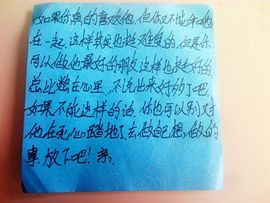 如果你真的喜欢他,但你又不能和他
在一起,这样其实也挺难受的,但是你
可以做他最好的朋友这样也挺好的
总比憋在心里,不说出来好的多吧.
如果不能这样的话.你也可以别对
他在死心踏地了去做自己想做的
事放下吧!亲.